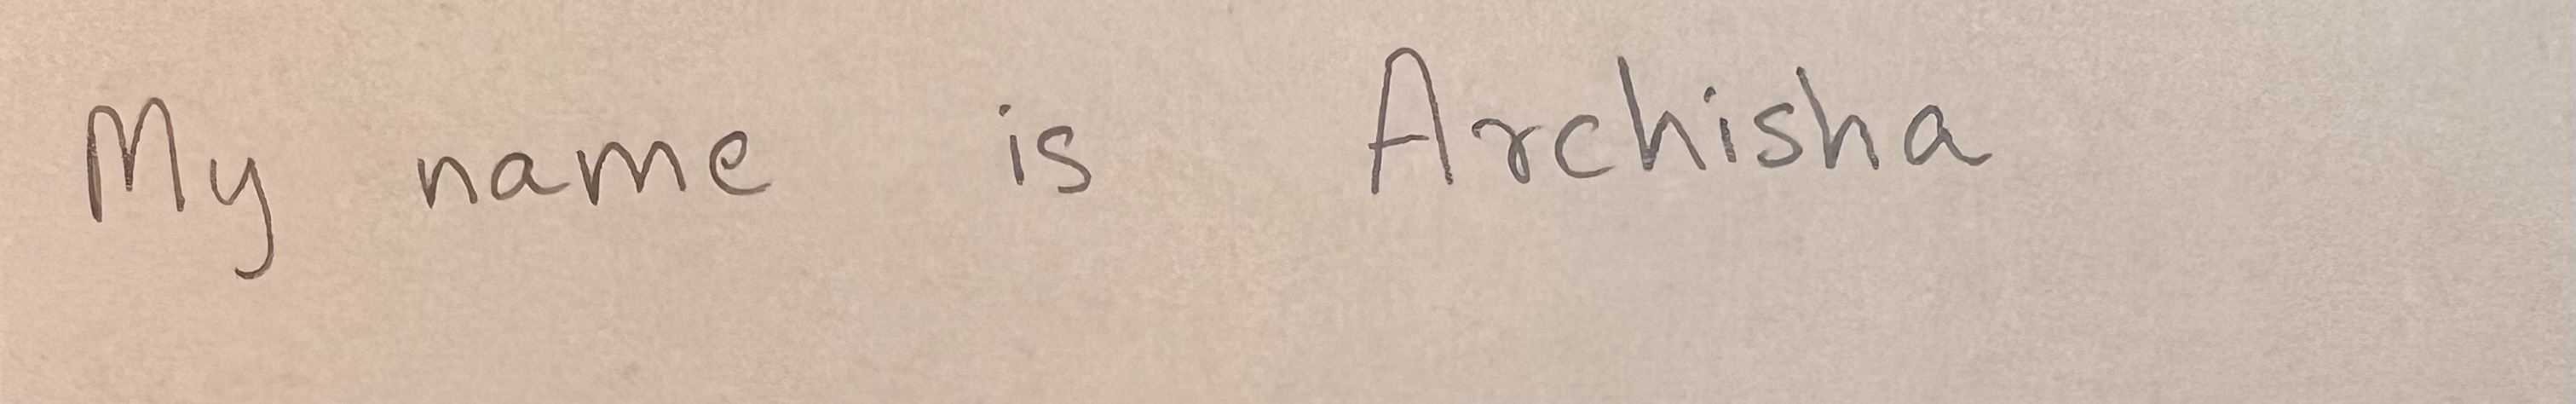 My name is Archisha